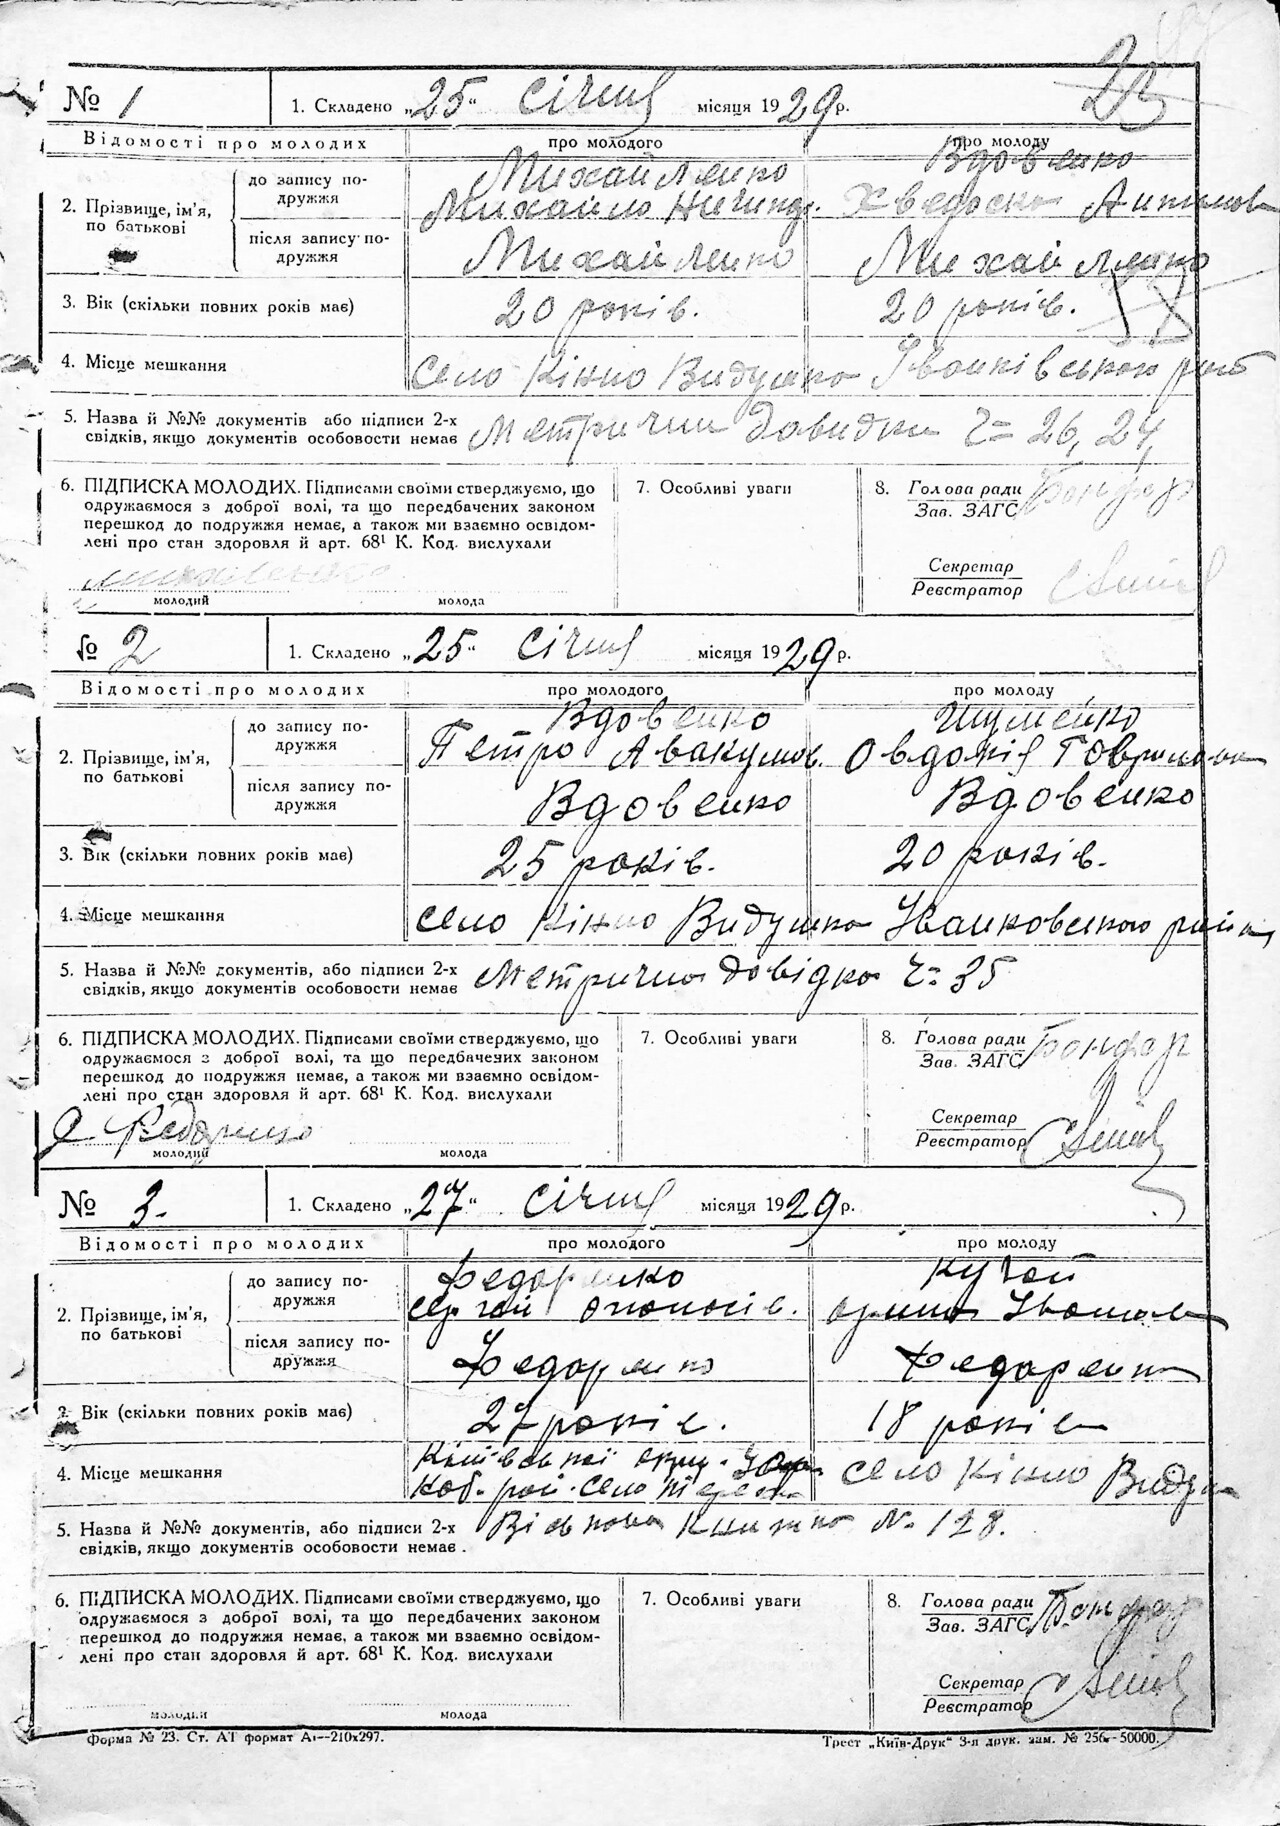 23
№ 1
1. Складено „25“ січня місяця 1929р.
Відомості про молодих
про молодого
про молоду
2. Прізвище, ім'я, по батькові
до запису подружжя
Михайленко
Михайло
Вдовенко
Хведоска
після запису подружжя
Михайленко
Михайленко
3. Вік (скільки повних років має)
20 років.
20 років.
4. Місце мешкання
село Кінно Видумка Іванківського
5. Назва й №№ документів або підписи 2-х
свідків, якщо документів особовости немає
Метрични Довидки Ч= 26, 24,
6. ПІДПИСКА МОЛОДИХ. Підписами своїми стверджуємо, що
одружаємося з доброї волі, та що передбачених законом
перешкод до подружжя немає, а також ми взаємно освідом-
лені про стан здоровля й арт. 68¹ К. Код. вислухали
молодий
молода
7. Особливі уваги
8. Голова ради
Зав. ЗАГС
Бондар
Секретар
Реєстратор
№ 2
1. Складено „25“ січня місяця 1929р.
Відомості про молодих
про молодого
про молоду
2. Прізвище, ім'я,
по батькові
до запису по-
дружжя
Вдовенко
Петро Авакумов.
Шумейко
Овдокія
після запису по-
дружжя
Вдовенко
Вдовенко
3. Вік (скільки повних років має)
25 років.
20 років.
4. Місце мешкання
село Кінно Видумка Иванковського
5. Назва й №№ документів, або підписи 2-х
свідків, якщо документів особовости немає
Метрична довідка Ч= 35
6. ПІДПИСКА МОЛОДИХ. Підписами своїми стверджуємо, що
одружаємося з доброї волі, та що передбачених законом
перешкод до подружжя немає, а також ми взаємно освідом-
лені про стан здоровля й арт. 68¹ К. Код. вислухали
молодий
молода
7. Особливі уваги
8. Голова ради
Зав. ЗАГС
Бондар
Секретар
Реєстратор
№ 3.
1. Складено „27“ січня місяця 1929р.
Відомості про молодих
про молодого
про молоду
2. Прізвище, ім'я,
по батькові
до запису по-
дружжя
Федоренко
Сергей
Кучай
Орина
після запису по-
дружжя
Федоренко
Федоренко
3. Вік (скільки повних років має)
27 років.
18 років
4. Місце мешкання
село
село Кінно Видумка
5. Назва й №№ документів, або підписи 2-х
свідків, якщо документів особовости немає.
книжка № 128.
6. ПІДПИСКА МОЛОДИХ. Підписами своїми стверджуємо, що
одружаємося з доброї волі, та що передбачених законом
перешкод до подружжя немає, а також ми взаємно освідом-
лені про стан здоровля й арт. 68¹ К. Код. вислухали
молодий
молода
7. Особливі уваги
8. Голова ради
Зав. ЗАГС
Бондар
Секретар
Реєстратор
Форма № 23. Ст. АТ формат А₁—210х297.
Трест „Київ-Друк“ 3-я друк. зам. № 256—50000.